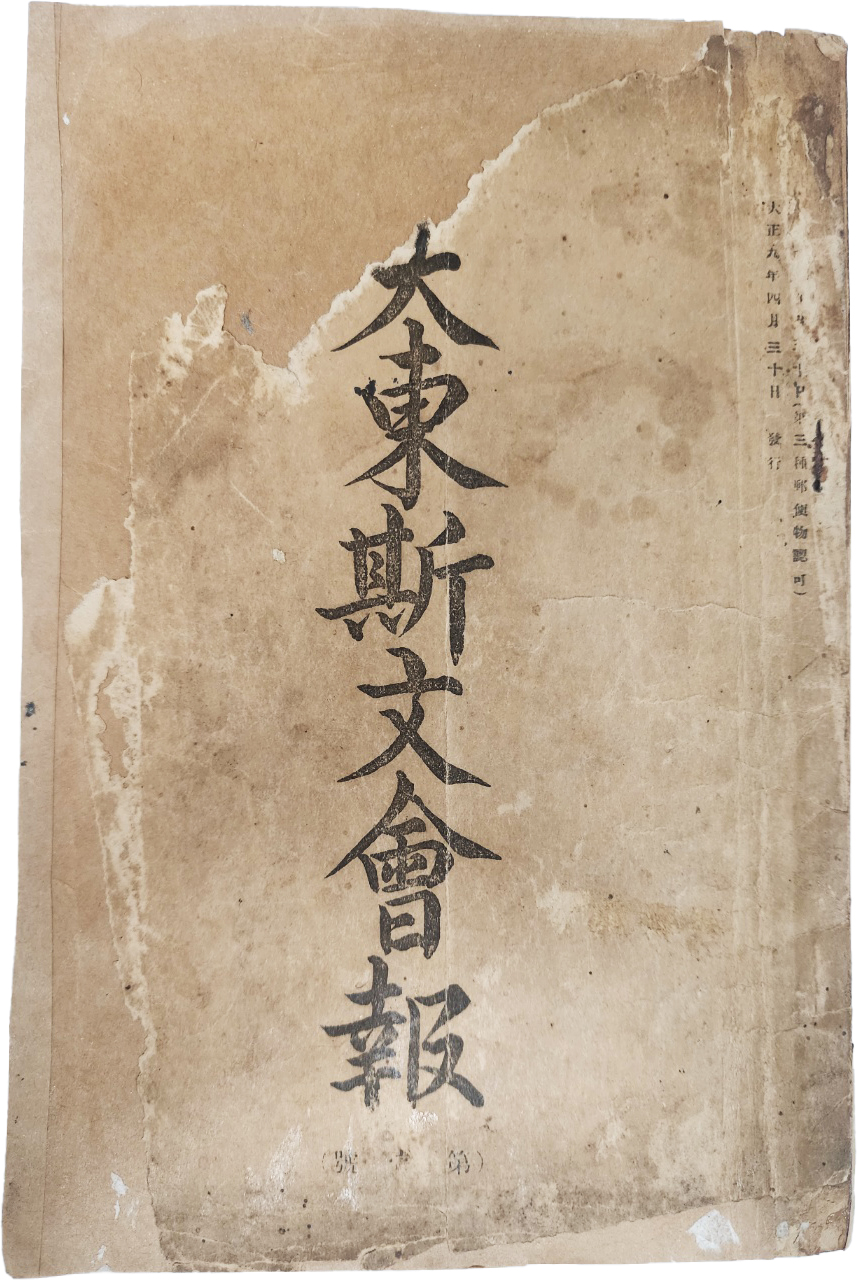 三十日(第三種郵便物認可)
大正九年四月三十日 發行
大東斯文會報
(第 號)